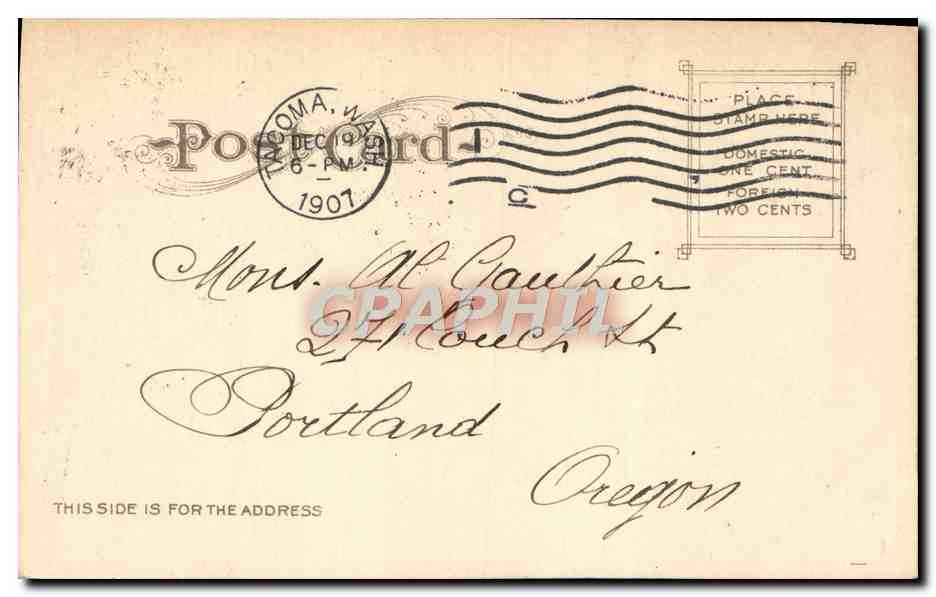 Post Card
TACOMA, WASH.
DEC 19
6 - PM
1907
C
PLACE
STAMP HERE
DOMESTIC
ONE CENT
FOREIGN
TWO CENTS
Mons. Al Gauthier
271 Couch St
Portland
Oregon
CPAPHIL
THIS SIDE IS FOR THE ADDRESS